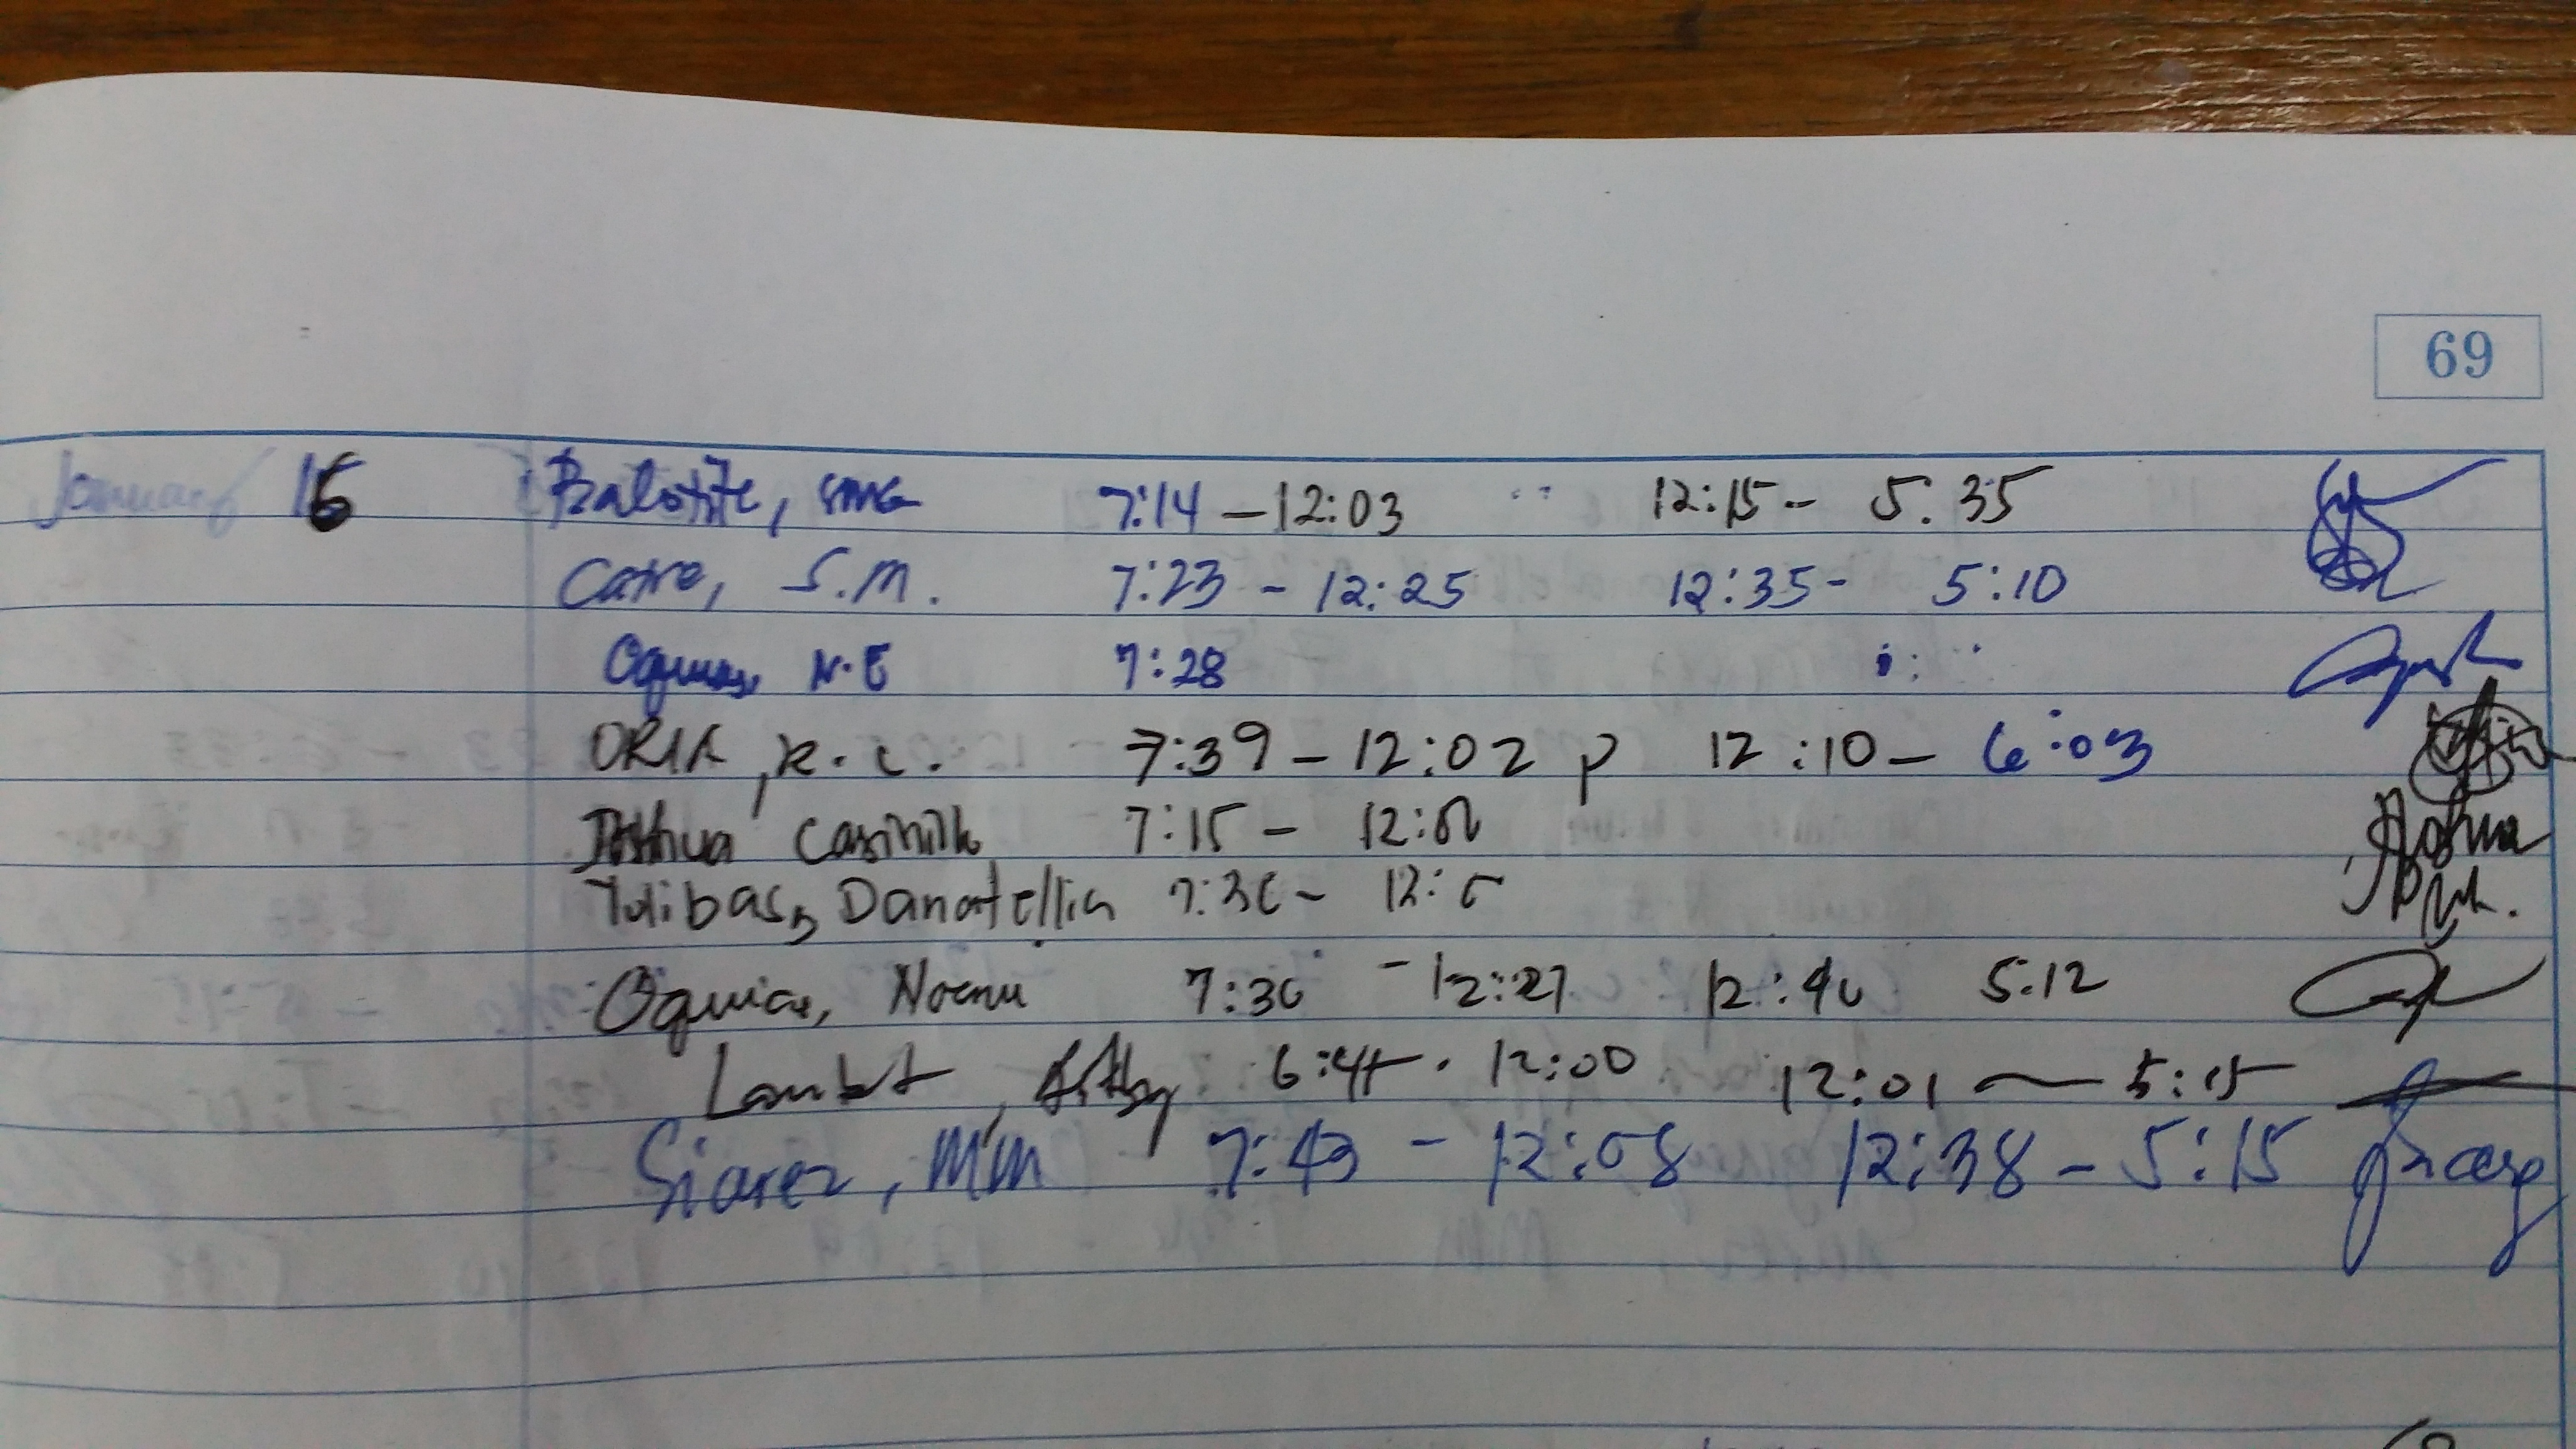 69
January 16 Balotite, SMG 7:14 – 12:03 12:15 – 5.35
Catre, S.M. 7:23 - 12:25 12:35 - 5:10
Oquias, N.E 7:28
ORIA, K.C. 7:39 – 12:02 p 12:10 – 6:03
Joshua Casinillo 7:15 – 12:01
Tulibas, Danatellia 7:30 – 12:5
Oquias, Noemi 7:30 - 12:27 12:40 5:12
Lambt, 6:45 - 12:00 12:01 — 5:15
Siarez, MM 7:43 - 12:08 12:38 - 5:15